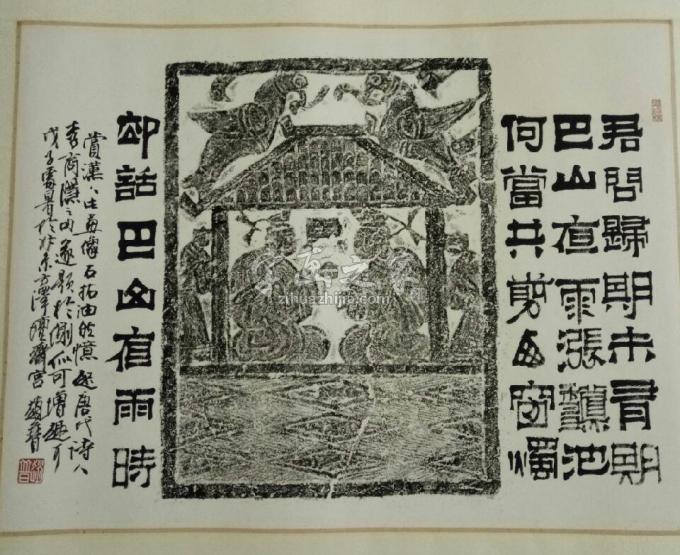 君問歸期未有期
巴山夜雨漲龝池
何當共剪西窗燭
卻話巴山夜雨時
賞漢畫像石拓油然憶起唐代詩人
李商隱之句遂題於側似可增趣耳
戊子處暑於北京方澤齋宮
字画之家
zihuazhijia.com